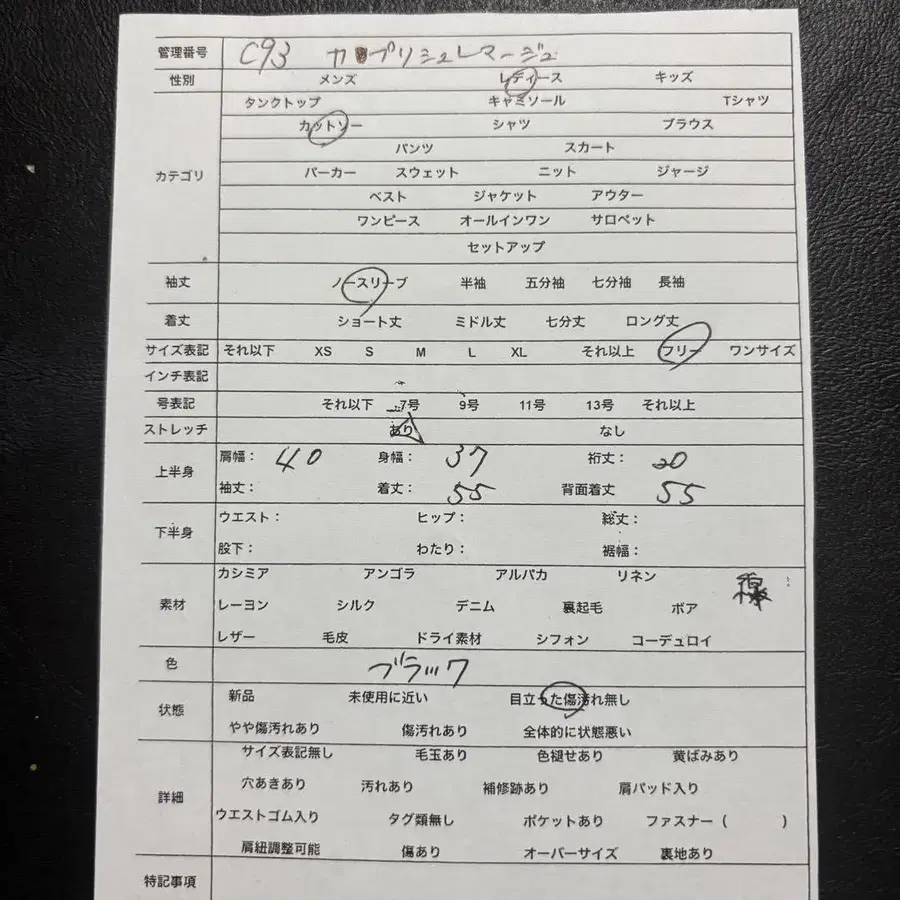 管理番号 C93 カプリシュレマージュ
性別 メンズ レディース キッズ
タンクトップ キャミソール Tシャツ
カットソー シャツ ブラウス
パンツ スカート
カテゴリ パーカー スウェット ニット ジャージ
ベスト ジャケット アウター
ワンピース オールインワン サロペット
セットアップ
袖丈 ノースリーブ 半袖 五分袖 七分袖 長袖
着丈 ショート丈 ミドル丈 七分丈 ロング丈
サイズ表記 それ以下 XS S M L XL それ以上 フリー ワンサイズ
インチ表記
号表記 それ以下 7号 9号 11号 13号 それ以上
ストレッチ あり なし
上半身 肩幅: 40 身幅: 37 裄丈: 20
袖丈: 着丈: 55 背面着丈 55
下半身 ウエスト: ヒップ: 総丈:
股下: わたり: 裾幅:
カシミア アンゴラ アルパカ リネン
素材 レーヨン シルク デニム 裏起毛 ボア
レザー 毛皮 ドライ素材 シフォン コーデュロイ
色 ブラック
状態 新品 未使用に近い 目立った傷汚れ無し
やや傷汚れあり 傷汚れあり 全体的に状態悪い
サイズ表記無し 毛玉あり 色褪せあり 黄ばみあり
詳細 穴あきあり 汚れあり 補修跡あり 肩パッド入り
ウエストゴム入り タグ類無し ポケットあり ファスナー( )
肩紐調整可能 傷あり オーバーサイズ 裏地あり
特記事項